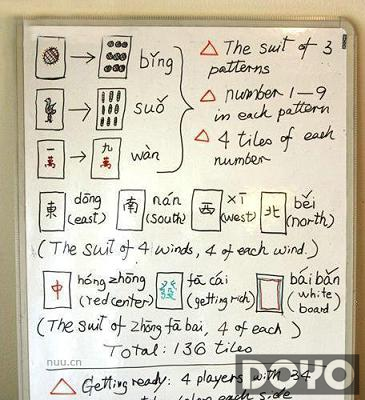 bǐng
suǒ
一萬 → 九萬 wàn
△ The suit of 3
patterns
△ number 1—9
in each pattern
△ 4 tiles of each
number
東 dōng (east) 南 nán (south) 西 xī (west) 北 běi (north)
(The suit of 4 winds, 4 of each wind.)
中 hóng zhōng (red center) 發 fā cái (getting rich) bái bǎn (white board)
(The suit of zhōng fā bai, 4 of each)
Total: 136 tiles
△ Getting ready: 4 players with 34
each side
nuu.cn
DOYO